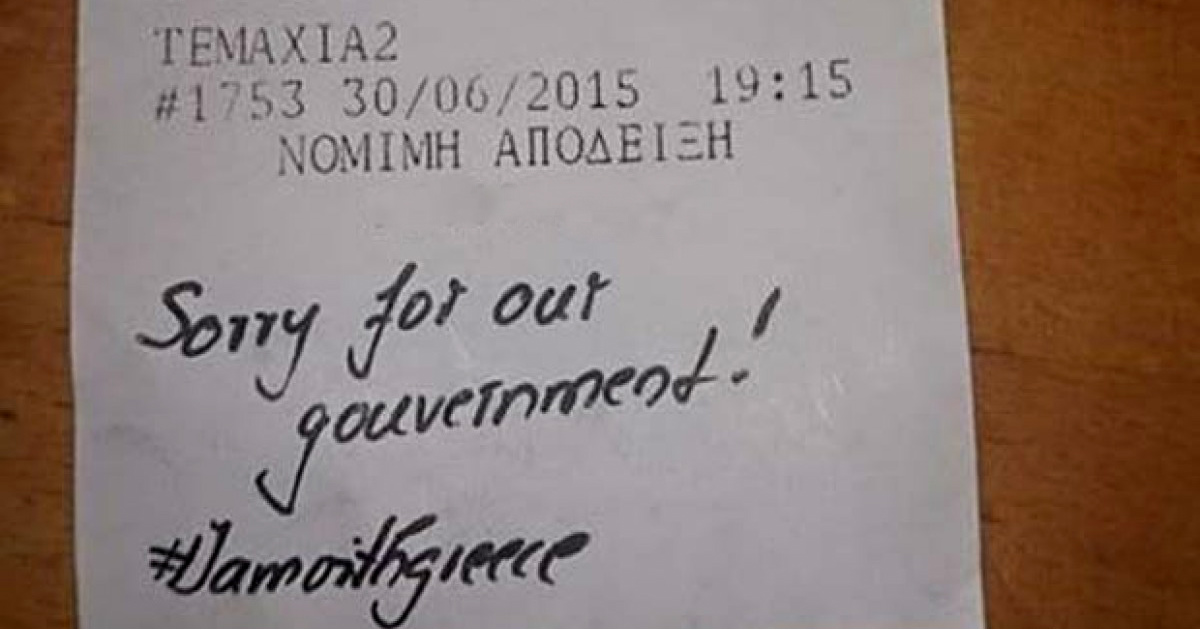 ΤΕΜΑΧΙΑ2
#1753 30/06/2015 19:15
ΝΟΜΙΜΗ ΑΠΟΔΕΙΞΗ
Sorry for our
gouvernment!
#Iamwithgreece